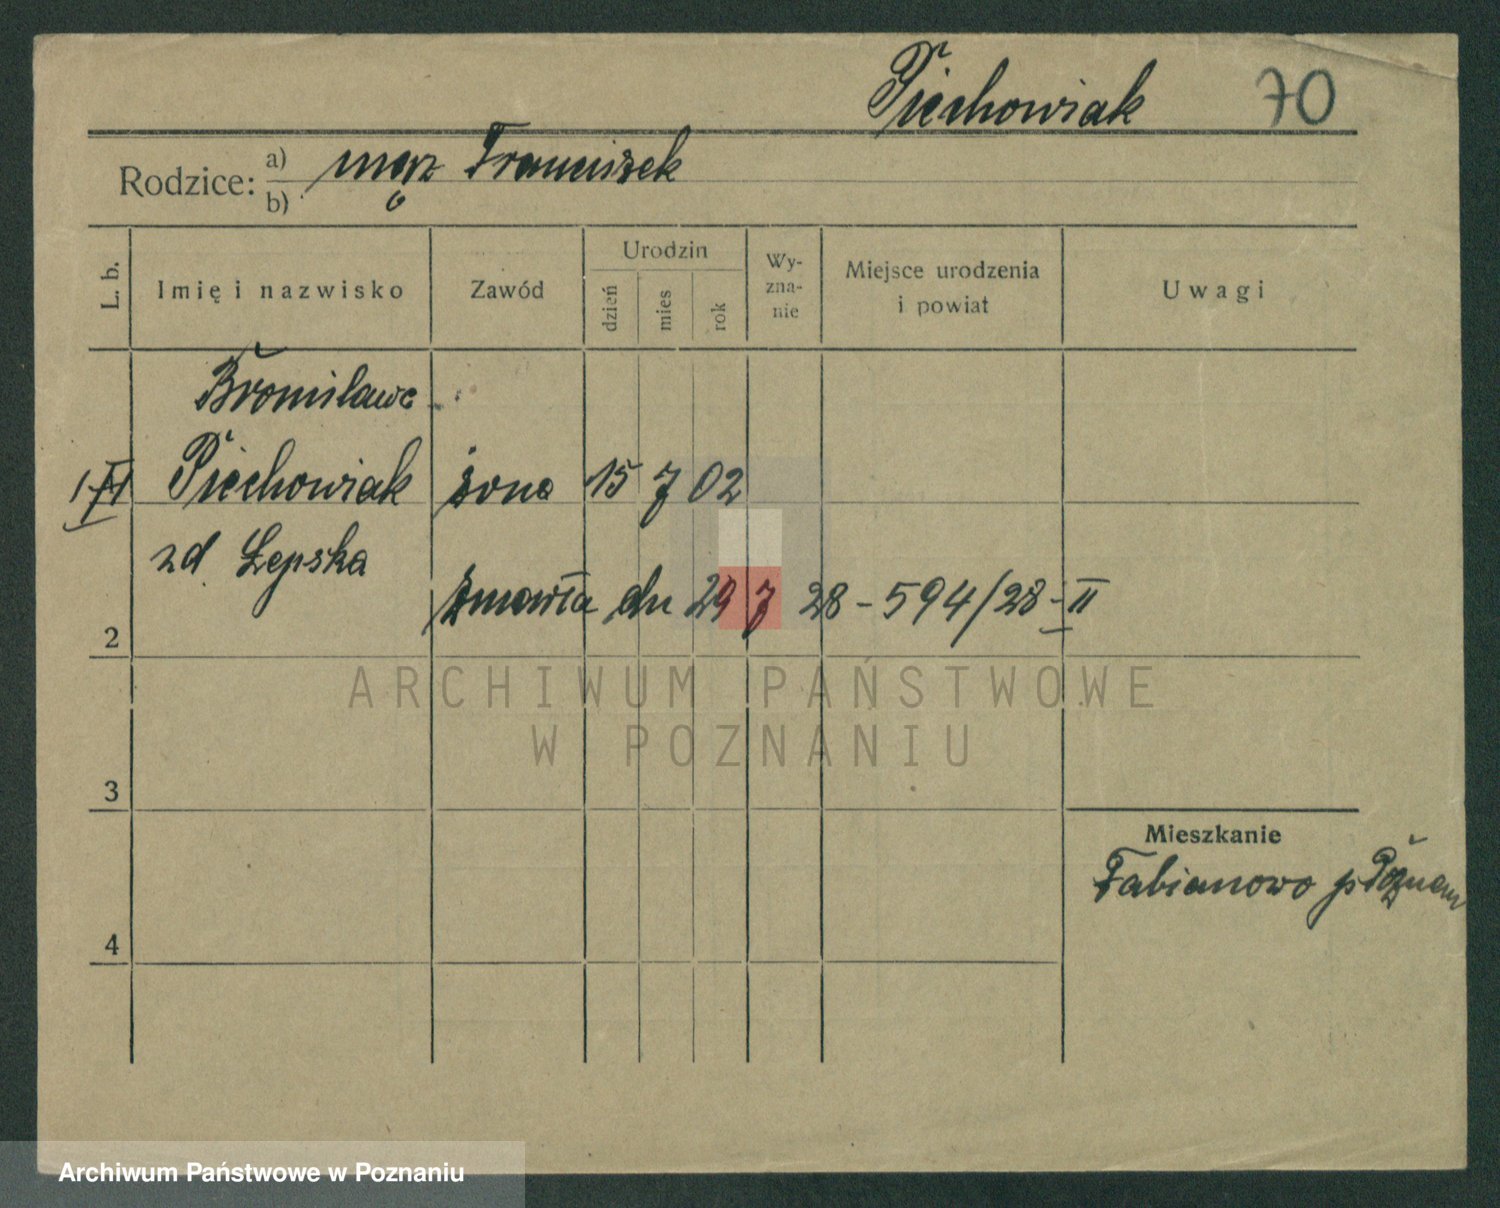 Piechowiak 70
Rodzice: a) mąż Franciszek
b)
L. b. Imię i nazwisko Zawód Urodzin dzień mies rok Wy-zna-nie Miejsce urodzenia i powiat Uwagi
Bronisława
Piechowiak żona 15 7 02
zd Łepska
zmarła dn 29 7 28 - 594/28 - II
2
ARCHIWUM PAŃSTWOWE
W POZNANIU
3
Mieszkanie
Fabianowo p Poznań
4
Archiwum Państwowe w Poznaniu